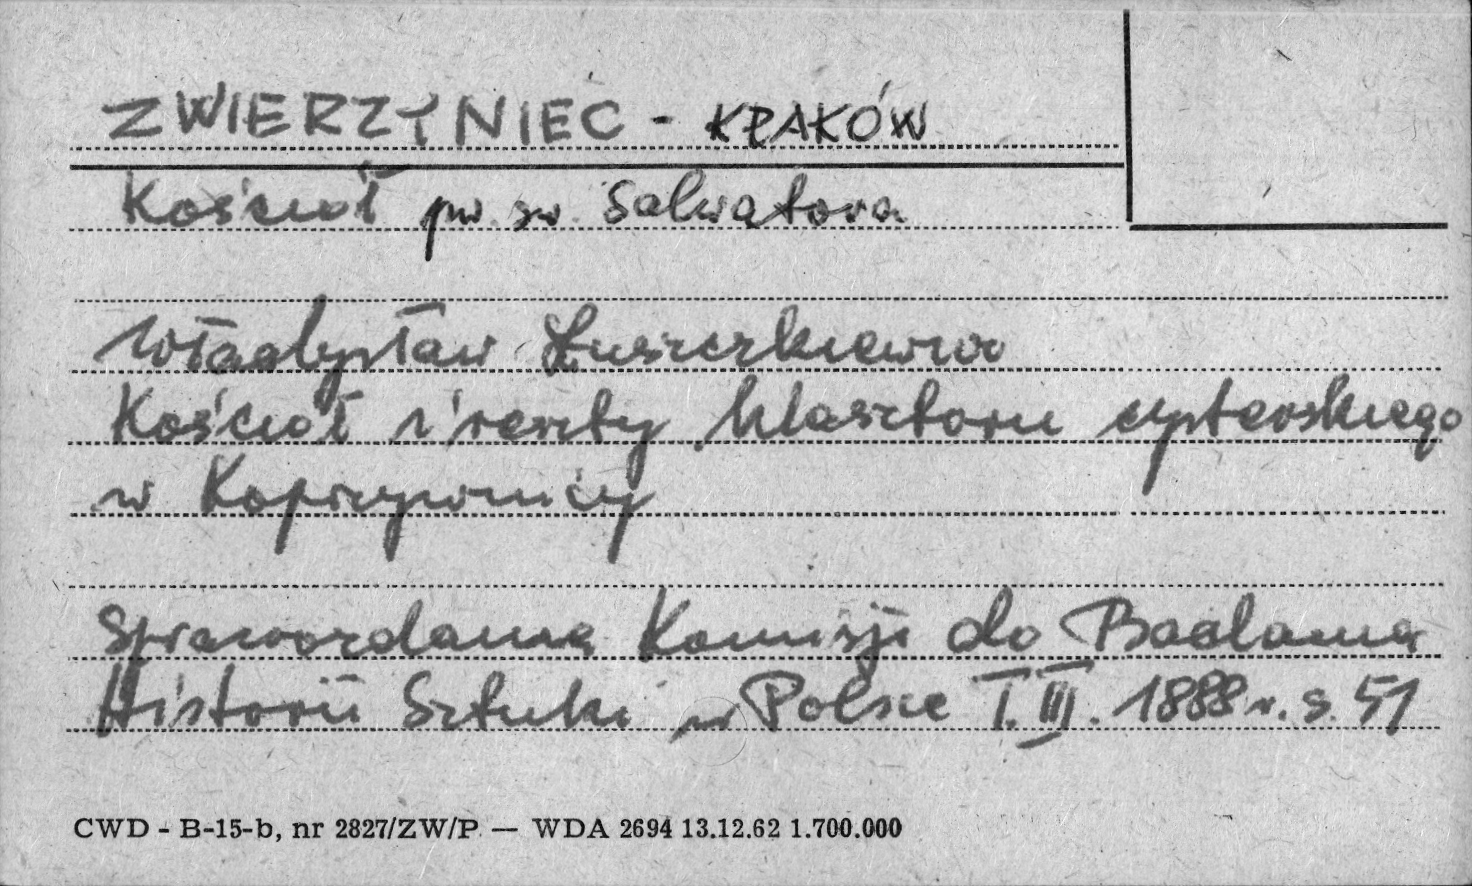 ZWIERZYNIEC - KRAKÓW
Kościół pw. św. Salwatora
Władysław Łuszczkiewicz
Kościół i reszty klasztoru cysterskiego
w Koprzywnicy
Sprawozdania Komisji do Badania
Historii Sztuki w Polsce T. III. 1888 r. s. 51
CWD - B-15-b, nr 2827/ZW/P — WDA 2694 13.12.62 1.700.000